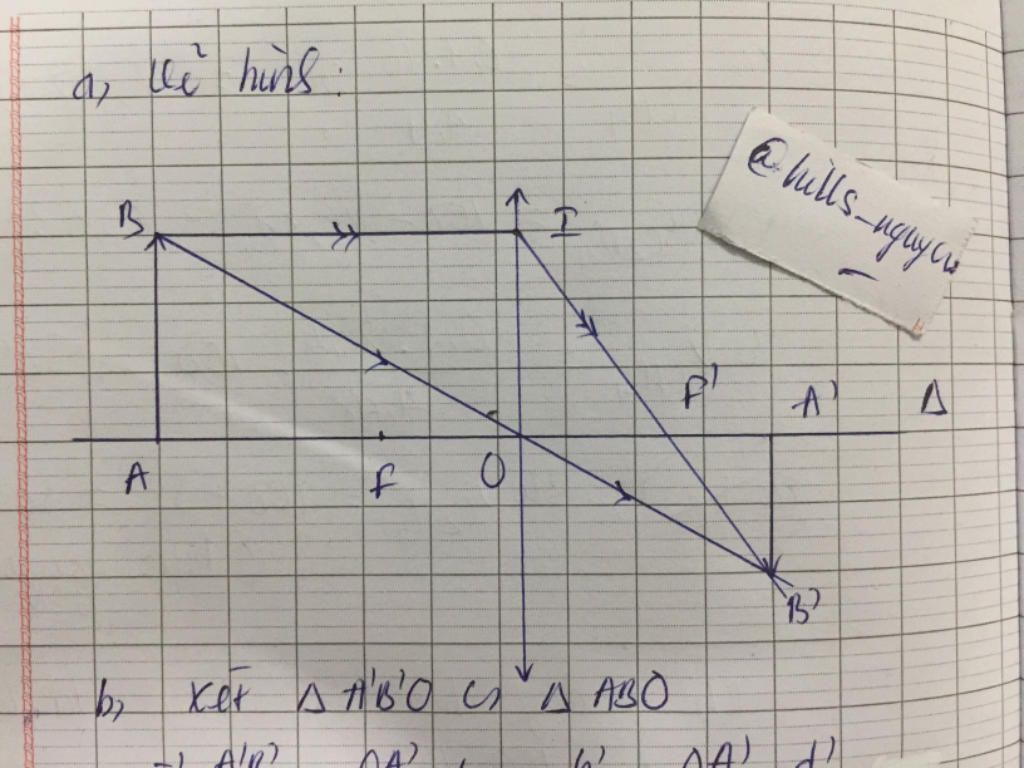 a, Vẽ hình:
@hills_nguyen
B
I
F'
A'
Δ
A
F
O
B'
b, Xét Δ A'B'O ∽ Δ ABO